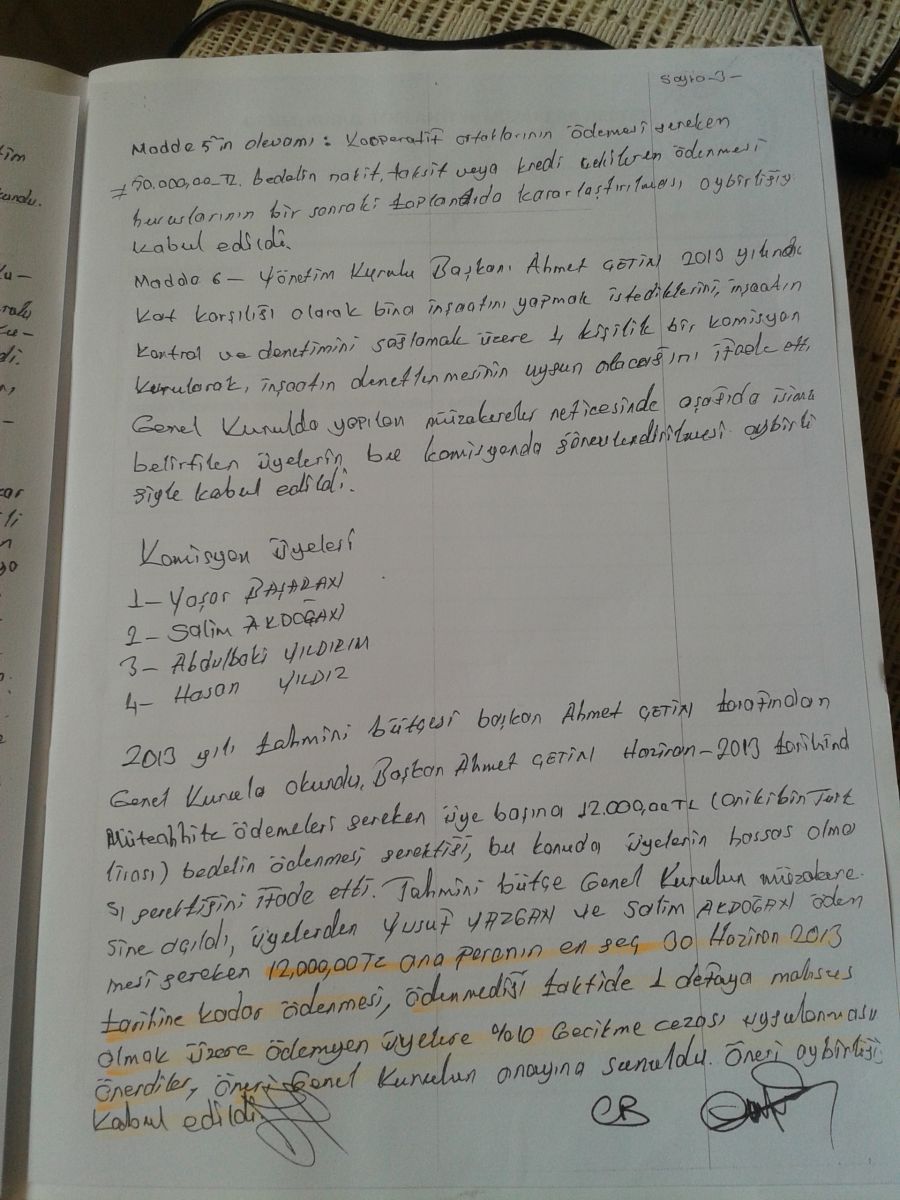 Sayfa-3-
Madde 5'in devamı: Kooperatif ortaklarının ödemesi gereken
50.000,00 TL. bedelin nakit, taksit veya kredi çekilerek ödenmesi
hususlarının bir sonraki toplantıda kararlaştırılması oybirliğiy
kabul edildi.
Madde 6- Yönetim Kurulu Başkanı Ahmet ÇETİN 2013 yılında
Kat karşılığı olarak bina inşaatını yapmak istediklerini, inşaatın
kontrol ve denetimini sağlamak üzere 4 kişilik bir komisyon
kurularak, inşaatın denetlenmesinin uygun olacağını ifade etti.
Genel Kurulda yapılan müzakereler neticesinde aşağıda isim
belirtilen üyelerin bu komisyonda görevlendirilmesi oybirli
ğiyle kabul edildi.
Komisyon Üyeleri
1- Yaşar BAŞARAN
2- Salim AKDOĞAN
3- Abdulbaki YILDIRIM
4- Hasan YILDIZ
2013 yılı tahmini bütçesi başkan Ahmet ÇETİN tarafından
Genel Kurula okundu, Başkan Ahmet ÇETİN Haziran-2013 tarihind
Müteahhite ödemeleri gereken üye başına 12.000,00TL (onikibin Türk
lirası) bedelin ödenmesi gerektiği, bu konuda üyelerin hassas olma
sı gerektiğini ifade etti. Tahmini bütçe Genel Kurulun müzakere
sine açıldı, üyelerden Yusuf YAZGAN ve Salim AKDOĞAN öden
mesi gereken 12,000,00TL ana paranın en geç 30 Haziran 2013
tarihine kadar ödenmesi, ödenmediği taktide 1 defaya mahsus
olmak üzere ödemeyen üyelere %10 Gecikme cezası uygulanması
önerdiler, öneri Genel Kurulun onayına sunuldu. Öneri oybirliği
kabul edildi.